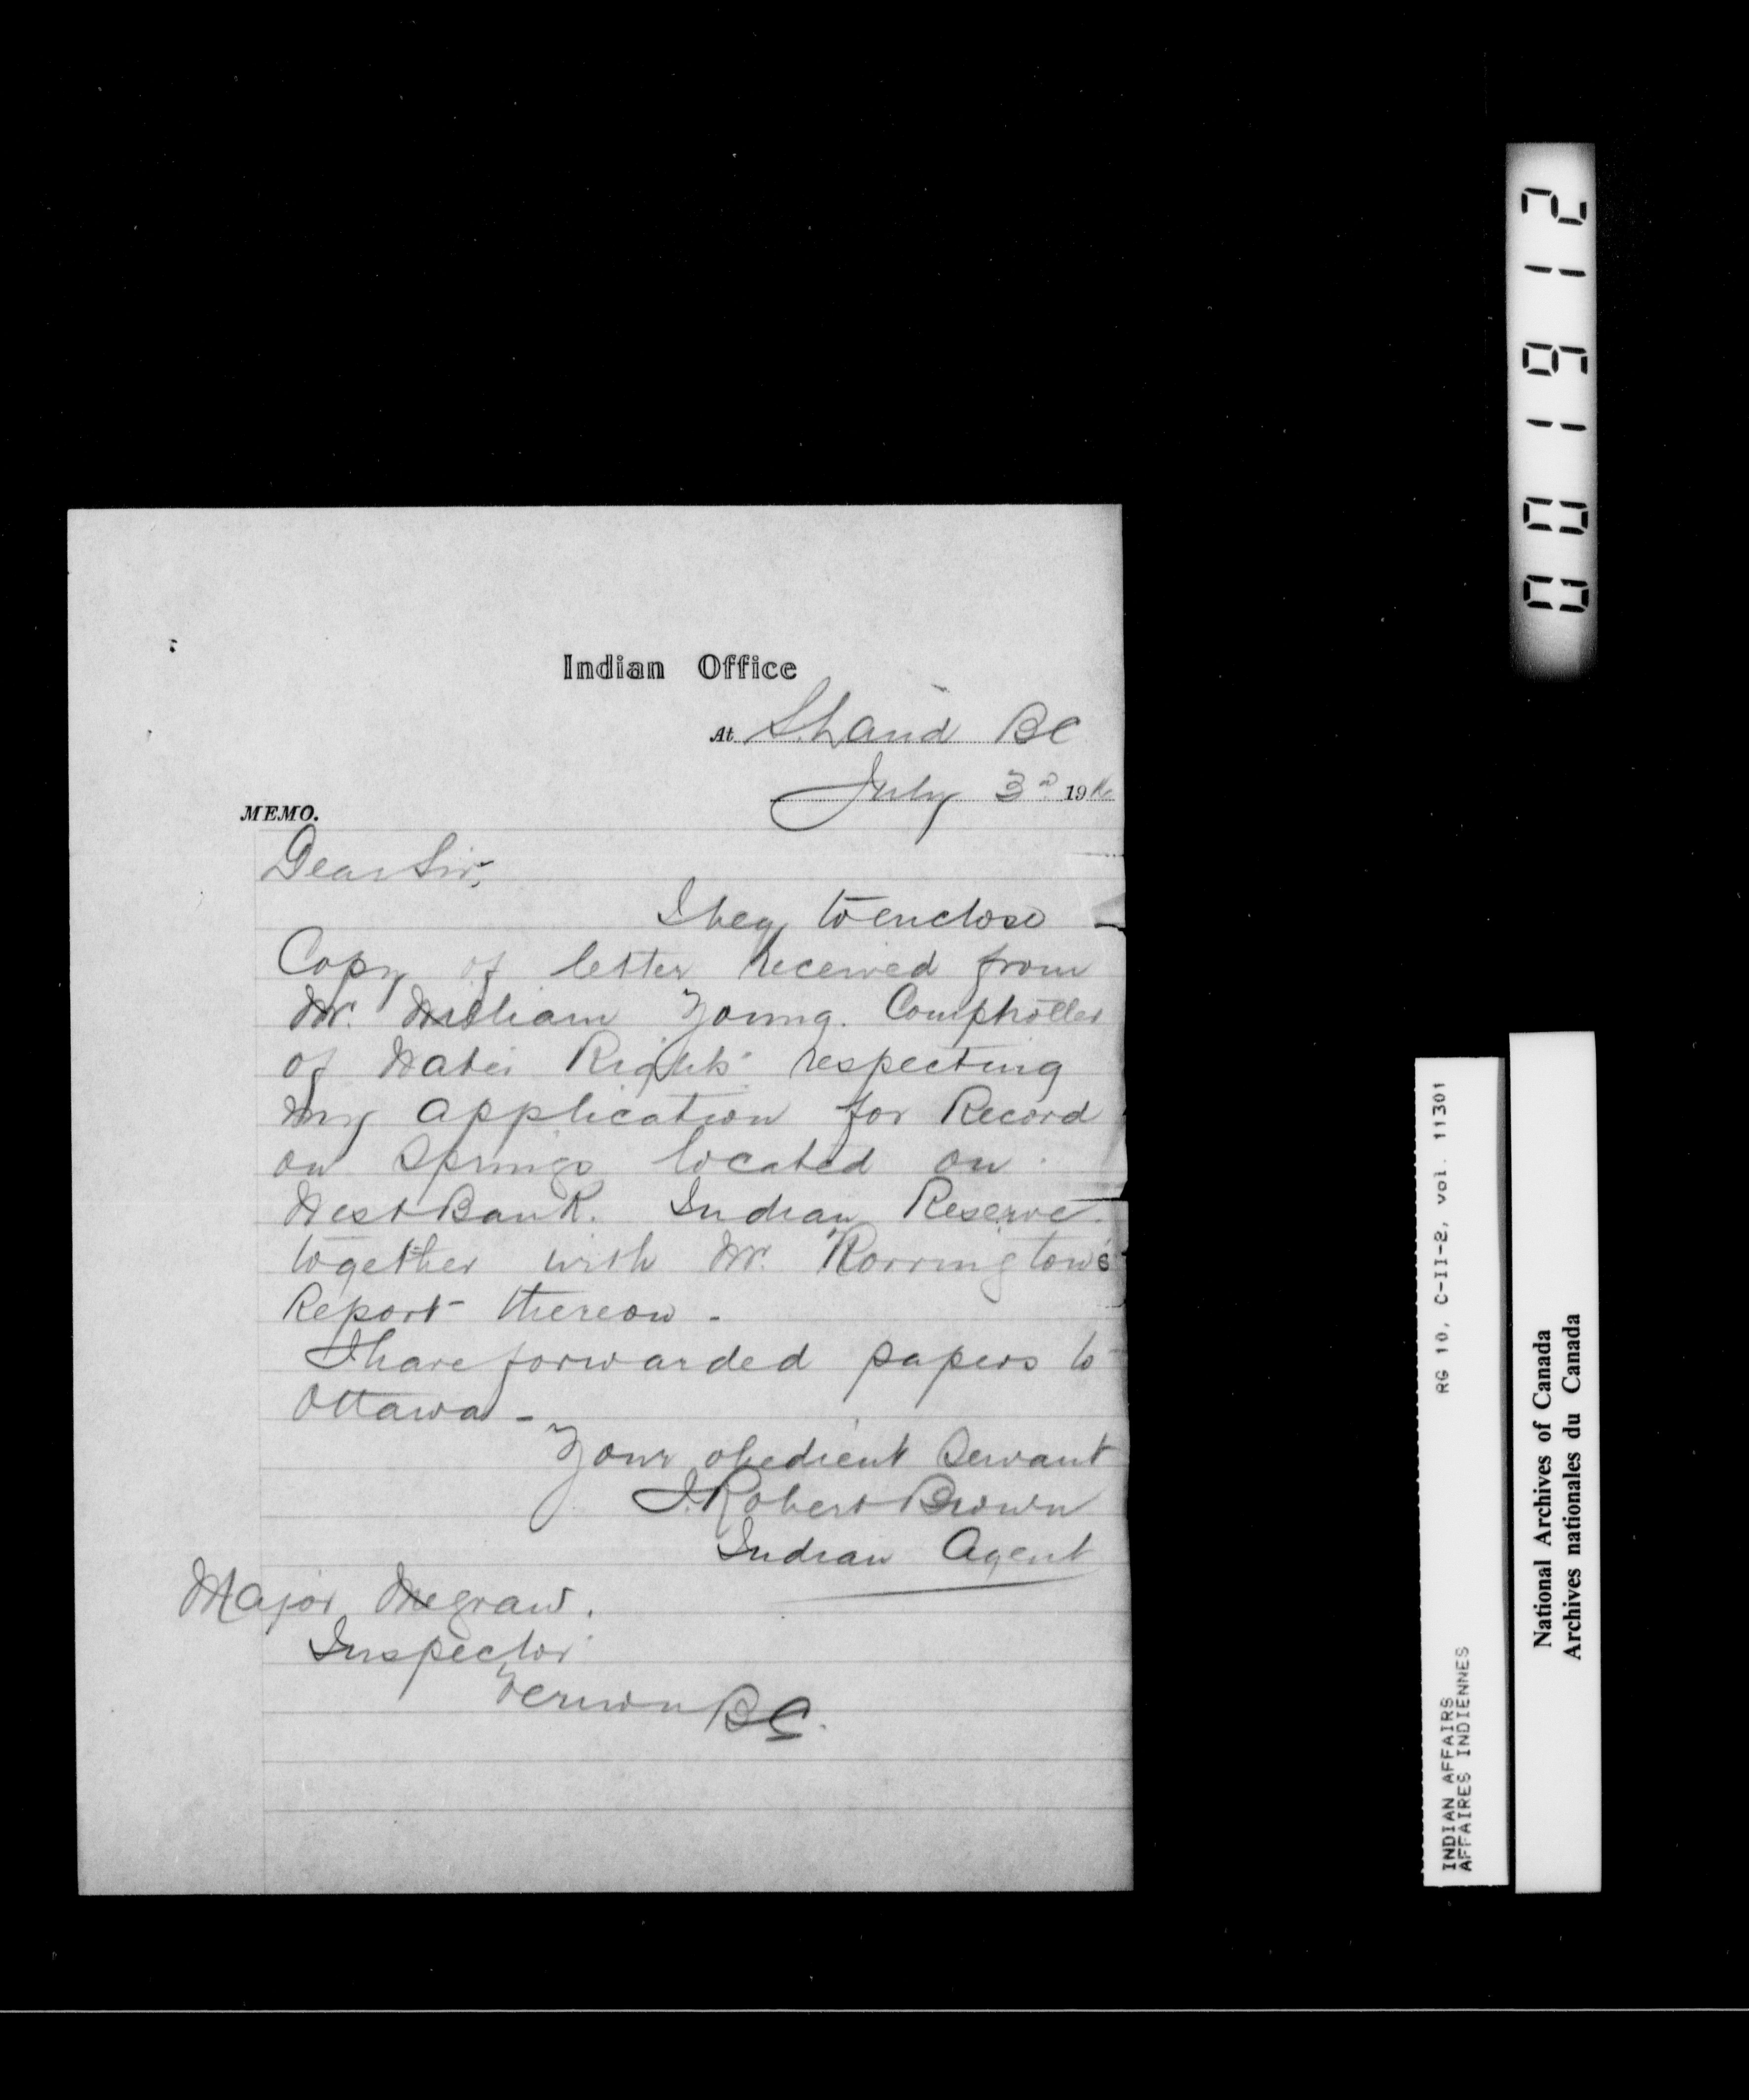 Indian Office
At Shand BC
July 3d 1916
MEMO.
Dear Sir,
I beg to enclose
Copy of letter received from
Mr. William Young. Comptroller
of Water Rights respecting
my application for Record
on Springs located on
West Bank. Indian Reserve.
together with Mr. Norrington's
Report thereon -
I have forwarded papers to
Ottawa -
Your obedient Servant
J. Robert Brown
Indian Agent
Major Megraw.
Inspector
Vernon BC.
001912
RG 10, C-II-2, vol. 11301
INDIAN AFFAIRS
AFFAIRES INDIENNES
National Archives of Canada
Archives nationales du Canada